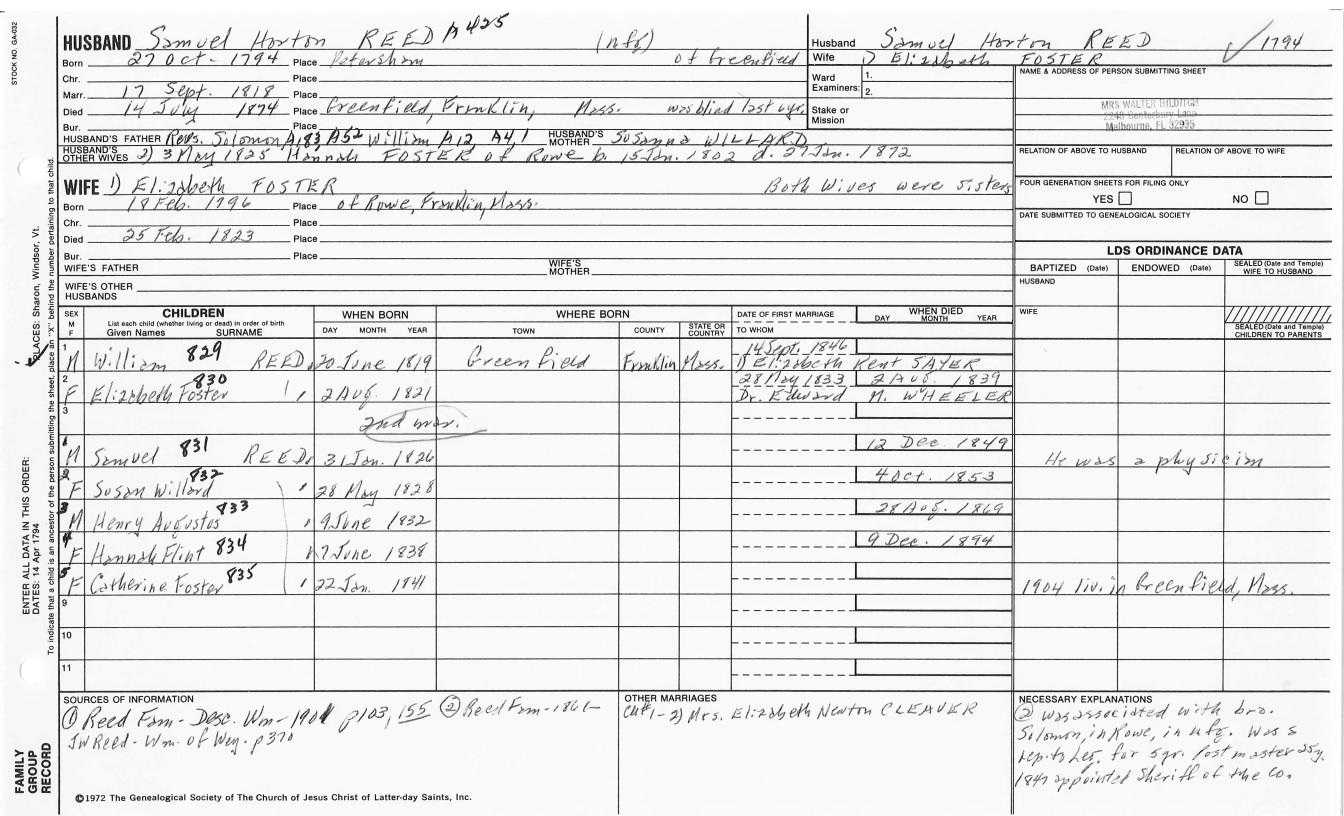 STOCK NO. GA-032
HUSBAND Samuel Horton REED A425 (nfs)
Born 27 Oct - 1794 Place Petersham of Greenfield
Chr. Place
Marr. 17 Sept. 1818 Place
Died 14 July 1874 Place Greenfield, Franklin, Mass. was blind last yrs,
Bur. Place
HUSBAND'S FATHER Revs. Solomon A183, A52 William A12, A4, 1 HUSBAND'S MOTHER Susanna WILLARD
HUSBAND'S OTHER WIVES 2) 3 May 1825 Hannah FOSTER of Rowe b. 15 Jan. 1802 d. 27 Jan. 1872
WIFE 1) Elizabeth FOSTER Both Wives were sisters
Born 18 Feb. 1796 Place of Rowe, Franklin, Mass.
Chr. Place
Died 25 Feb. 1823 Place
Bur. Place
WIFE'S FATHER WIFE'S MOTHER
WIFE'S OTHER HUSBANDS
Husband Samuel Horton REED 1794
Wife 1) Elizabeth FOSTER
Ward Examiners: 1. 2.
Stake or Mission
NAME & ADDRESS OF PERSON SUBMITTING SHEET
MRS WALTER
2248 Canterbury Lane
Melbourne, FL 32935
RELATION OF ABOVE TO HUSBAND RELATION OF ABOVE TO WIFE
FOUR GENERATION SHEETS FOR FILING ONLY
YES NO
DATE SUBMITTED TO GENEALOGICAL SOCIETY
LDS ORDINANCE DATA
BAPTIZED (Date) ENDOWED (Date) SEALED (Date and Temple) WIFE TO HUSBAND
HUSBAND
WIFE
SEALED (Date and Temple) CHILDREN TO PARENTS
SEX M F CHILDREN List each child (whether living or dead) in order of birth Given Names SURNAME
WHEN BORN DAY MONTH YEAR
WHERE BORN TOWN COUNTY STATE OR COUNTRY
DATE OF FIRST MARRIAGE TO WHOM
WHEN DIED DAY MONTH YEAR
1 M William 829 REED, 20 June 1819 Greenfield Franklin Mass. 14 Sept. 1846 1) Elizabeth Kent SAYER
2 F Elizabeth Foster 830 " 2 Aug. 1821 28 May 1833 2 Aug. 1839 Dr. Edward M. WHEELER
3 2nd mar.
1 M Samuel 831 REED, 31 Jan. 1826 12 Dec. 1849 He was a physician
2 F Susan Willard 832 " 28 May 1828 4 Oct. 1853
3 M Henry Augustos 833 " 9 June 1832 28 Aug. 1869
4 F Hannah Flint 834 " 7 June 1838 9 Dec. 1894
5 F Catherine Foster 835 " 22 Jan. 1841 1904 liv. in Greenfield, Mass.
9
10
11
SOURCES OF INFORMATION
① Reed Fam - Desc. Wm - 1901 p103, 155 ② Reed Fam - 1861 -
JW Reed - Wm. of Wey. - p370
OTHER MARRIAGES
Ch#1 - 2) Mrs. Elizabeth Newton CLEAVER
NECESSARY EXPLANATIONS
② Was associated with bro.
Solomon, in Rowe, in mfg. Was
for 5 yr. Post master 25 y.
1847 appointed Sheriff of the Co.
©1972 The Genealogical Society of The Church of Jesus Christ of Latter-day Saints, Inc.
FAMILY GROUP RECORD
ENTER ALL DATA IN THIS ORDER:
DATES: 14 Apr 1794
PLACES: Sharon, Windsor, Vt.
To indicate that a child is an ancestor of the person submitting the sheet, place an "X" behind the number pertaining to that child.